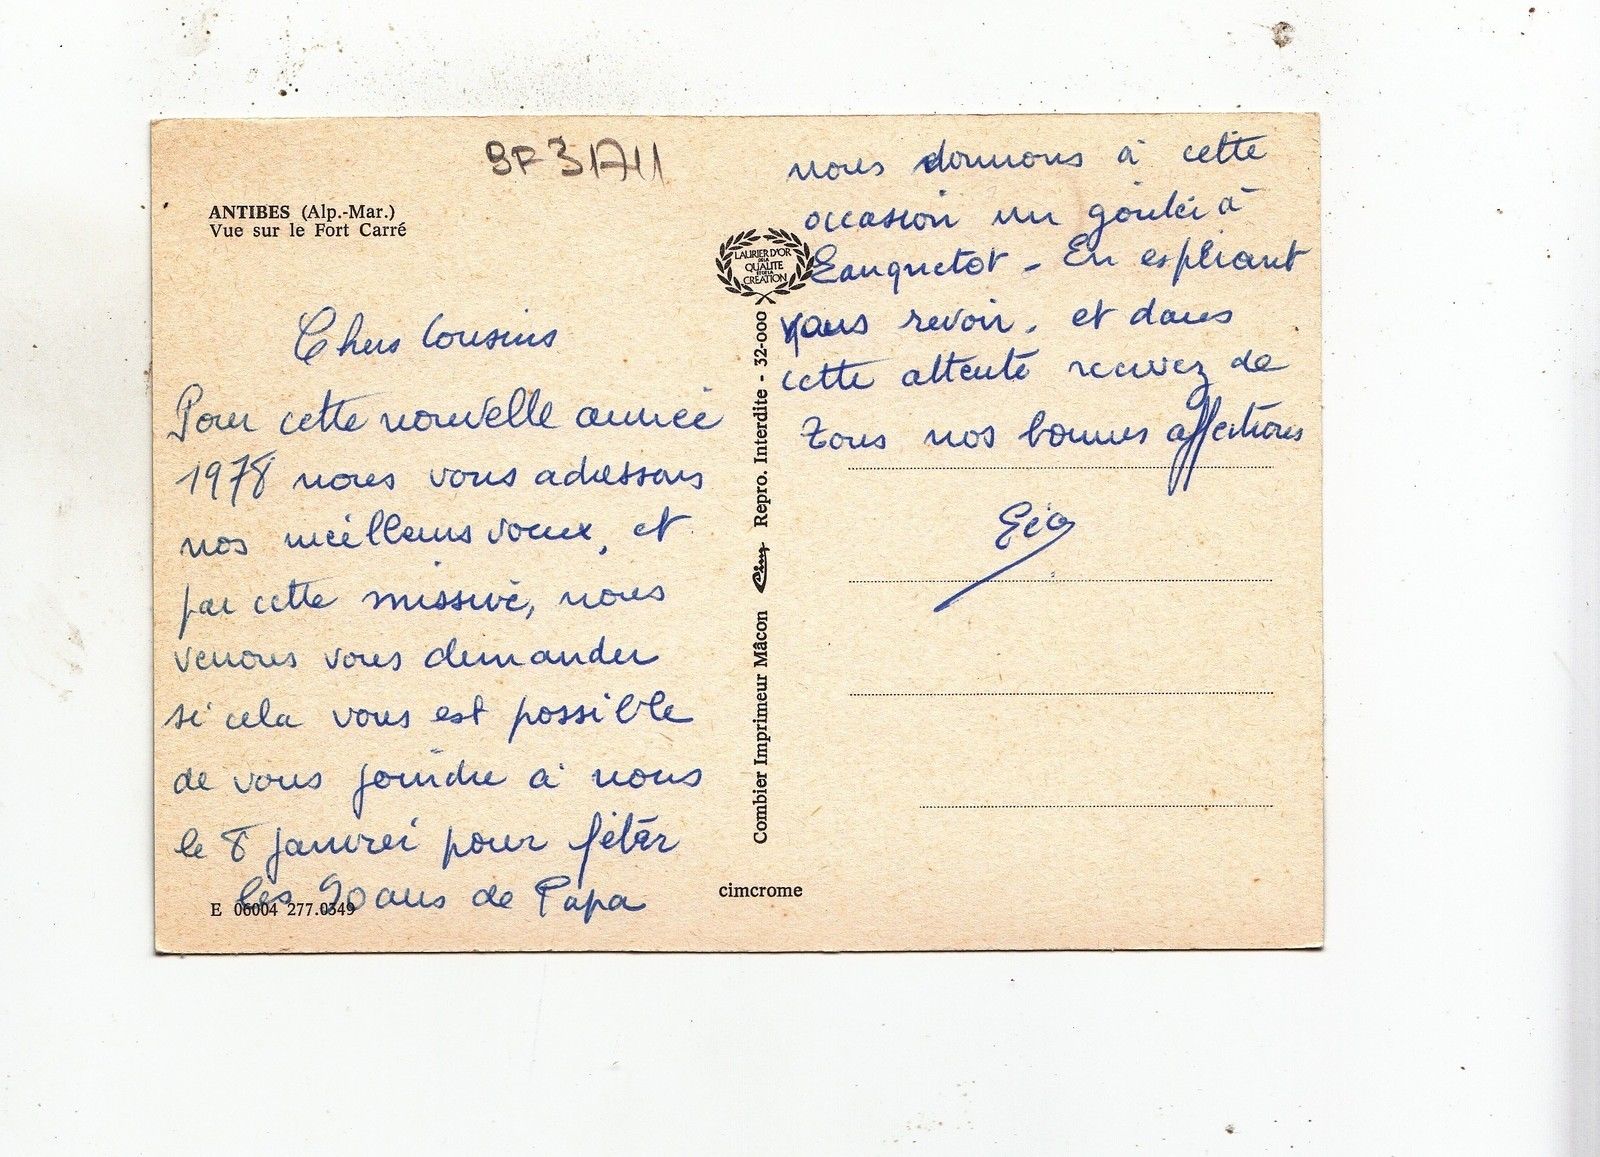 BF 31711
ANTIBES (Alp.-Mar.)
Vue sur le Fort Carré
Chers Cousins
Pour cette nouvelle année
1978 nous vous adressons
nos meilleurs voeux, et
par cette missive, nous
venons vous demander
si cela vous est possible
de vous joindre à nous
le 8 janvier pour fêter
les 90 ans de Papa
E 06004 277.0349
LAURIER D'OR
DE LA
QUALITE
ET DE LA
CREATION
Combier Imprimeur Mâcon Cim Repro. Interdite - 32-000
cimcrome
nous donnons à cette
occasion un goûter à
Lanquetot - En espérant
vous revoir. et dans
cette attente recevez de
tous nos bonnes affections